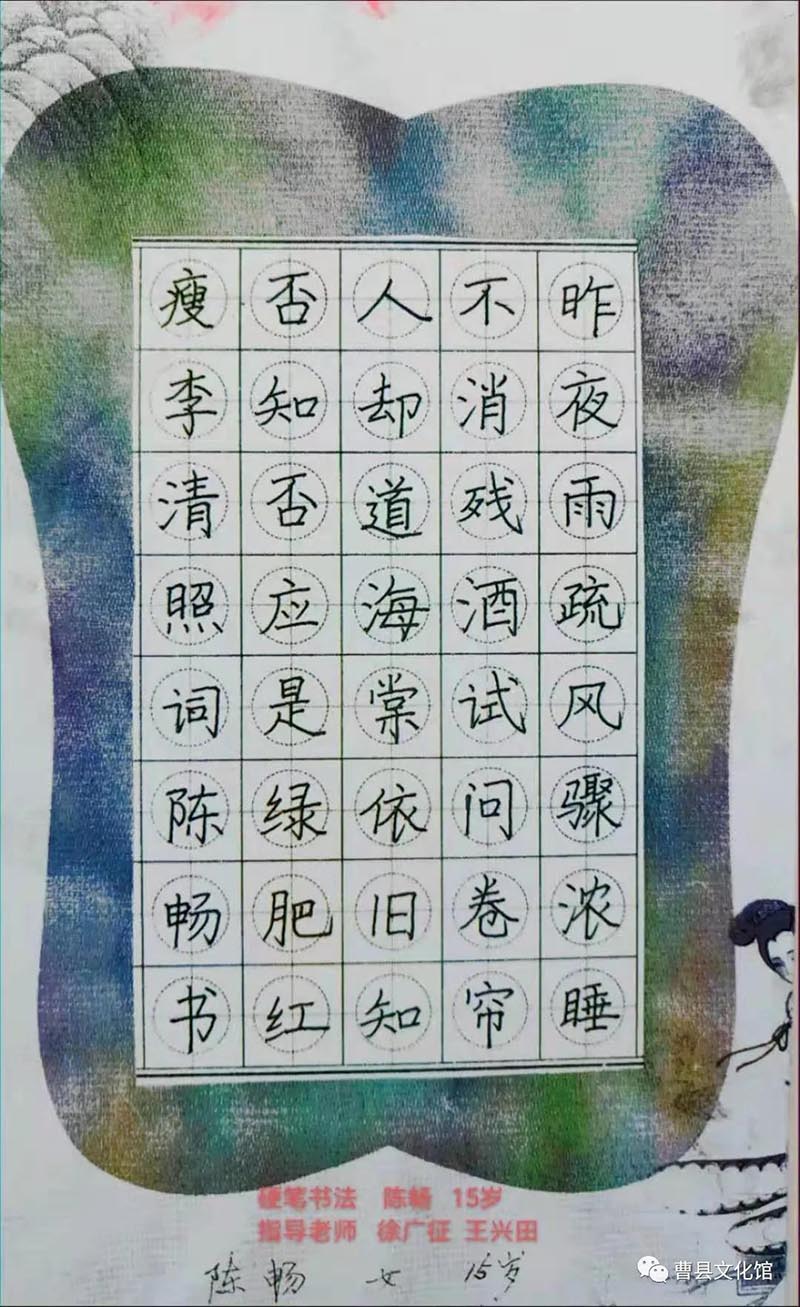 昨夜雨疏风骤浓睡
不消残酒试问卷帘
人却道海棠依旧知
否知否应是绿肥红
瘦李清照词陈畅书
硬笔书法 陈畅 15岁
指导老师 徐广征 王兴田
陈畅 女 15岁
曹县文化馆